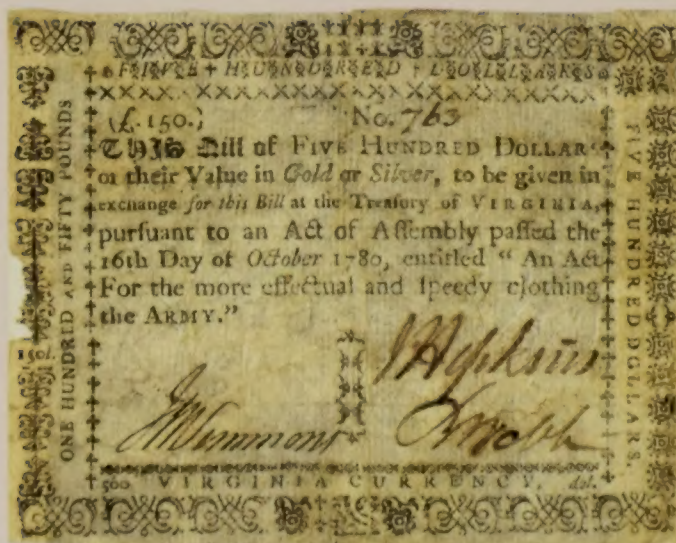 FIVE + HUNDRED + DOLLARS
(£.150.) No. 763
THIS Bill of FIVE HUNDRED DOLLARS
or their Value in Gold or Silver, to be given in
exchange for this Bill at the Treasury of VIRGINIA,
purſuant to an Act of Aſſembly paſſed the
16th Day of October 1780, entitled “ An Act
For the more effectual and ſpeedy clothing
the ARMY.”
J Hopkins
500 VIRGINIA CURRENCY. dol.
ONE HUNDRED AND FIFTY POUNDS
FIVE HUNDRED DOLLARS.